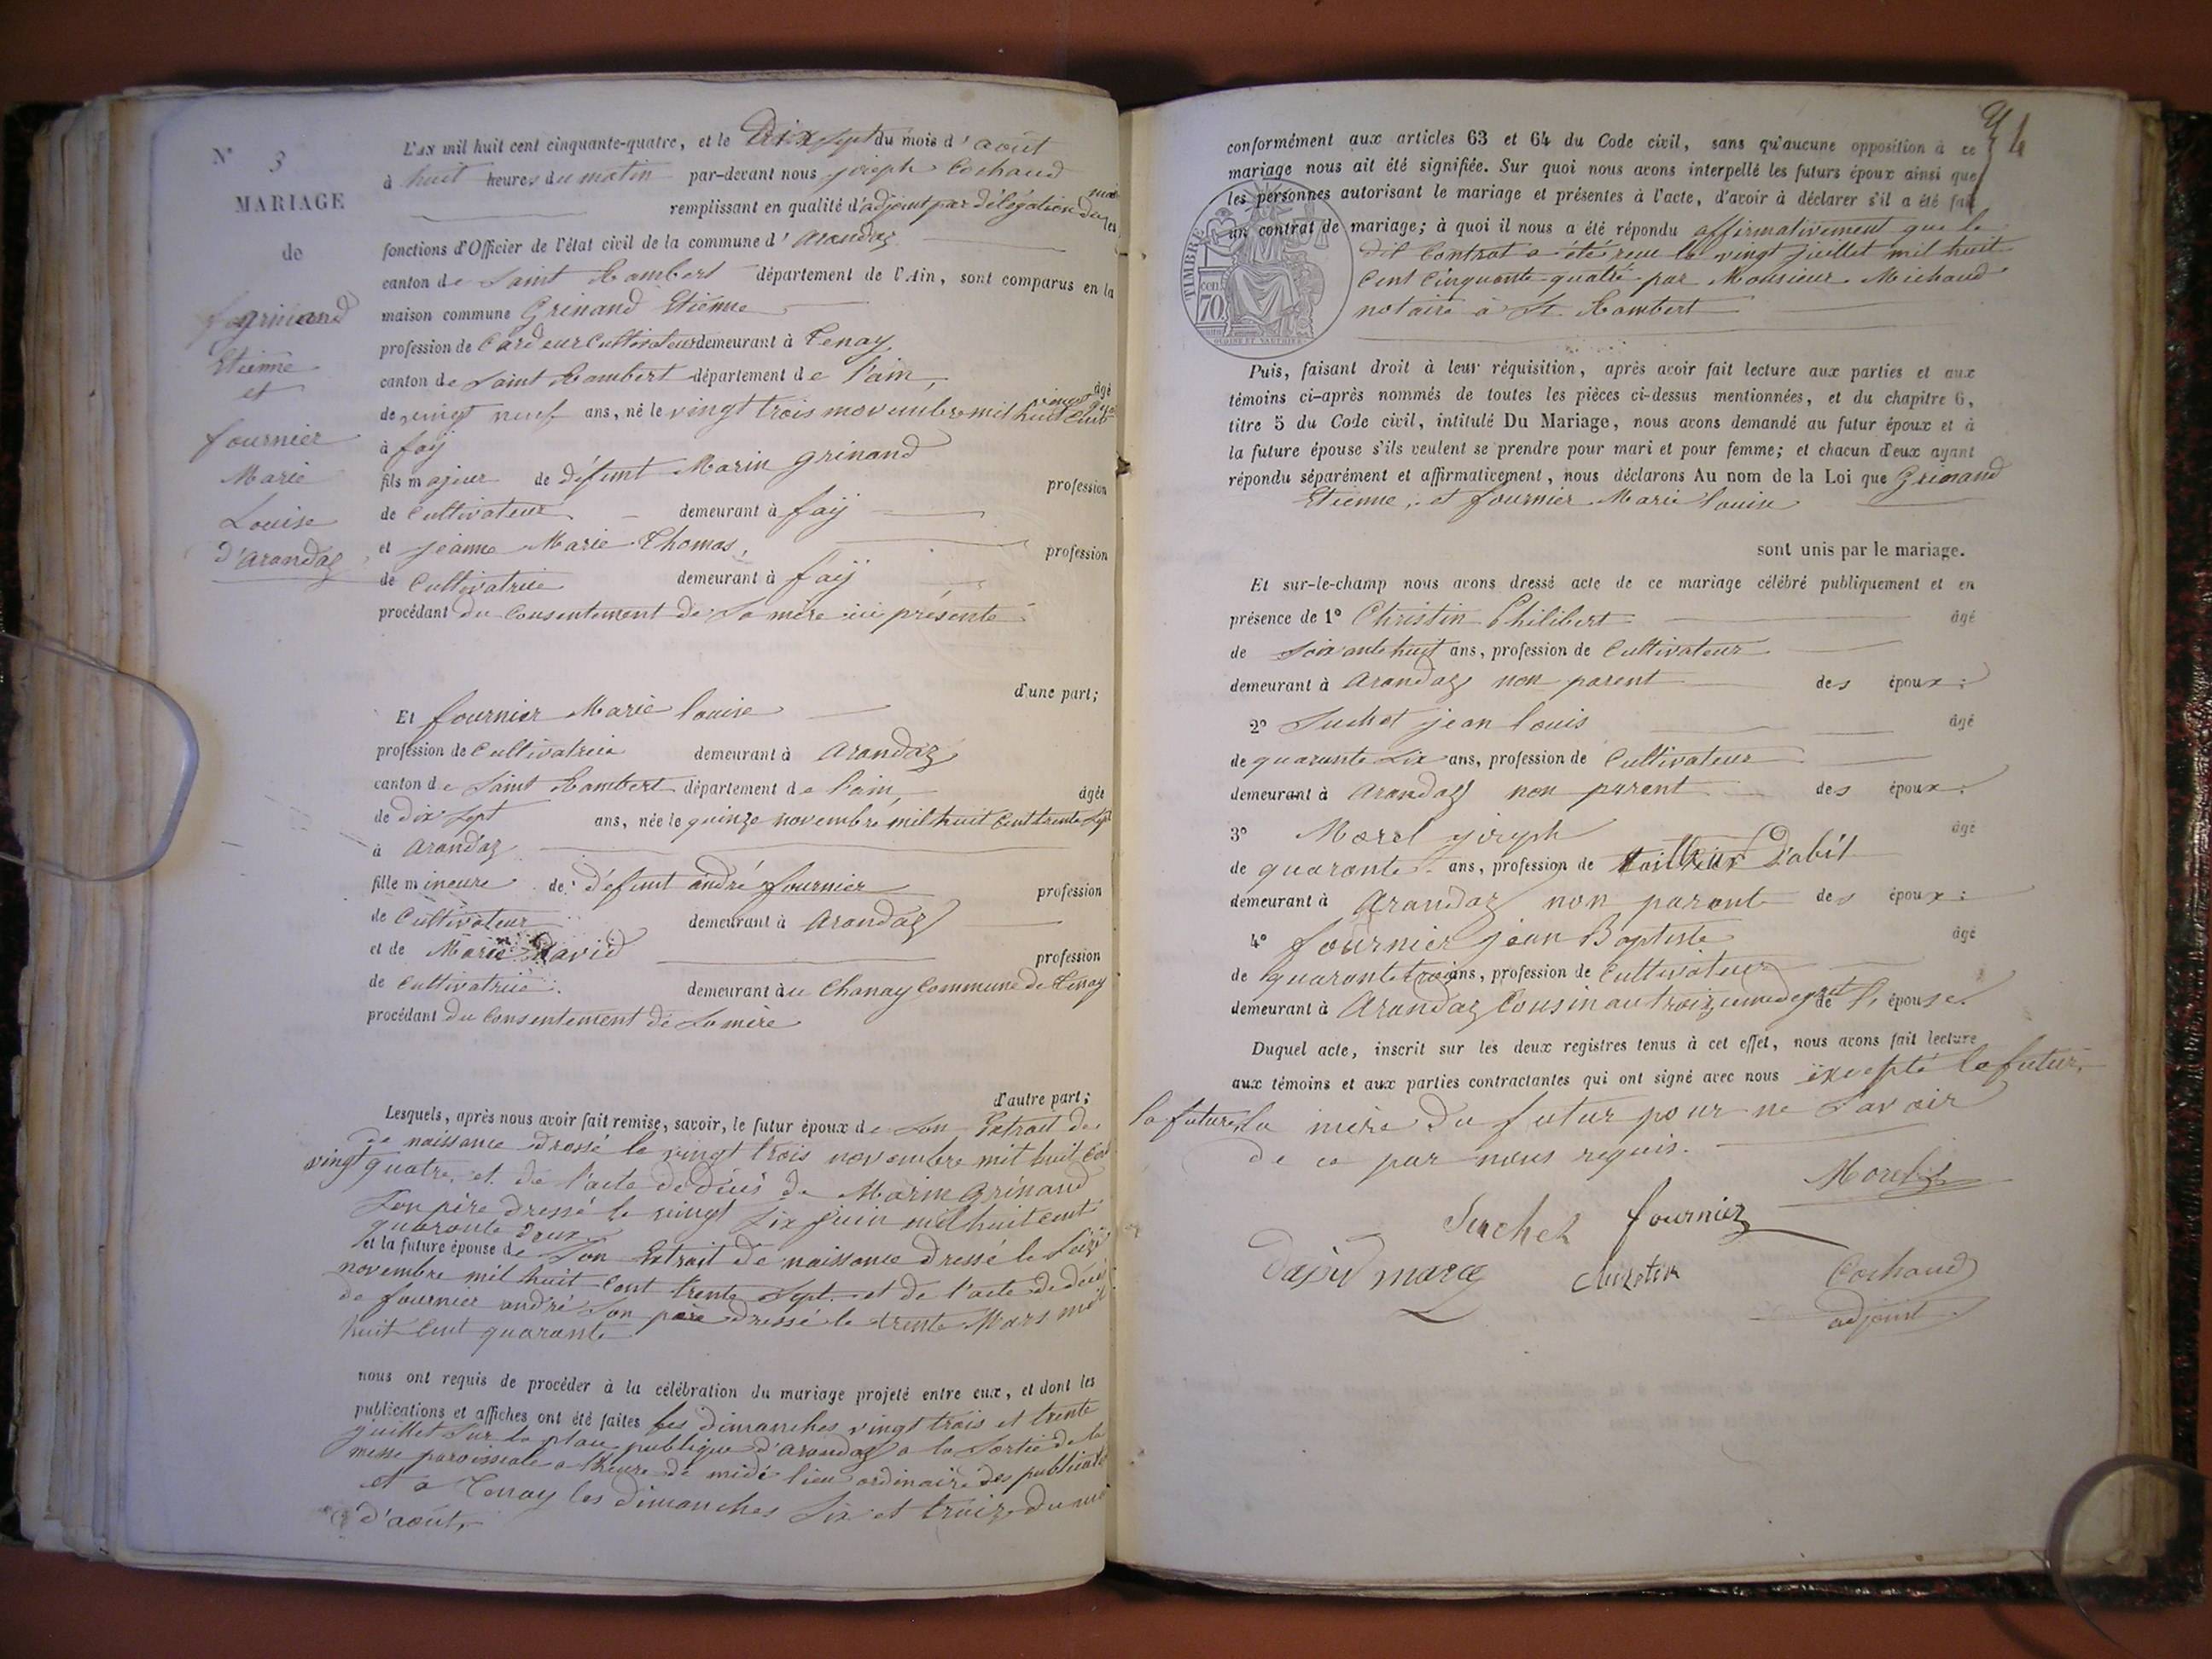 N° 3
MARIAGE
de
grinand
Etienne
et
fournier
Marie
Louise
d'arandaz
L'AN mil huit cent cinquante-quatre, et le Dix sept du mois d'août
à huit heures du matin par-devant nous joseph Cochaud
remplissant en qualité d'adjoint par délégation du maire les
fonctions d'Officier de l'état civil de la commune d'arandaz
canton de Saint Rambert département de l'Ain, sont comparus en la
maison commune Grinand Etienne
profession de Cardeur Cultivateur demeurant à Tenay
canton de Saint Rambert département de l'ain, âgé
de vingt neuf ans, né le vingt trois novembre mil huit cent vingt quatre
à faÿ
fils majeur de défunt Marin grinand profession
de Cultivateur demeurant à faÿ
et jeanne Marie Thomas, profession
de Cultivatrice demeurant à faÿ
procédant du Consentement de Sa mère ici présente
d'une part;
Et fournier Marie louise
profession de Cultivatrice demeurant à arandaz
canton de Saint Rambert département de l'ain, âgée
de dix sept ans, née le quinze novembre mil huit Cent trente Sept
à arandaz
fille mineure de défunt andré fournier profession
de Cultivateur demeurant à arandaz
et de Marie david profession
de Cultivatrice demeurant àu Chanay Commune de Tenay
procédant du Consentement de Sa mère
d'autre part;
Lesquels, après nous avoir fait remise, savoir, le futur époux de Son Extrait de
de naissance dressé le vingt trois novembre mil huit Cent
vingt quatre, et de l'acte de décès de Marin Grinand
Son père dressé le vingt Six juin mil huit cent
quarante deux
et la future épouse de Son Extrait de naissance dressé le Seize
novembre mil huit Cent trente Sept. et de l'acte de décès
de fournier andré Son père dressé le trente Mars mil
huit Cent quarante
nous ont requis de procéder à la célébration du mariage projeté entre eux, et dont les
publications et affiches ont été faites les dimanches vingt trois et trente
juillet Sur la place publique d'arandaz a la Sortie de la
messe paroissiale a l'heure de midi lieu ordinaire des publications
et a Tenay les dimanches Six et treize du mois
d'août,
conformément aux articles 63 et 64 du Code civil, sans qu'aucune opposition à ce
mariage nous ait été signifiée. Sur quoi nous avons interpellé les futurs époux ainsi que
les personnes autorisant le mariage et présentes à l'acte, d'avoir à déclarer s'il a été fait
un contrat de mariage; à quoi il nous a été répondu affirmativement que le
dit Contrat a été reçu le vingt juillet mil huit
Cent Cinquante quatre par Monsieur Michaud
notaire à St. Rambert
TIMBRE
cen.
70
Puis, faisant droit à leur réquisition, après avoir fait lecture aux parties et aux
témoins ci-après nommés de toutes les pièces ci-dessus mentionnées, et du chapitre 6,
titre 5 du Code civil, intitulé Du Mariage, nous avons demandé au futur époux et à
la future épouse s'ils veulent se prendre pour mari et pour femme; et chacun d'eux ayant
répondu séparément et affirmativement, nous déclarons Au nom de la Loi que Grinand
Etienne, et fournier Marie louise
sont unis par le mariage.
Et sur-le-champ nous avons dressé acte de ce mariage célébré publiquement et en
présence de 1° Christin Philibert âgé
de Soixante huit ans, profession de Cultivateur
demeurant à arandaz non parent des époux;
2° Suchet jean louis âgé
de quarante Six ans, profession de Cultivateur
demeurant à arandaz non parent des époux;
3° Morel joseph âgé
de quarante ans, profession de tailleur d'abit
demeurant à arandaz non parent des époux;
4° fournier jean Baptiste âgé
de quarante trois ans, profession de Cultivateur
demeurant à Arandaz Cousin au troizieme degré de l'épouse.
Duquel acte, inscrit sur les deux registres tenus à cet effet, nous avons fait lecture
aux témoins et aux parties contractantes qui ont signé avec nous excepté le futur,
la future, la mère du futur pour ne Savoir
de ce par nous requis.
Morel
Suchet fournier
David marie Christin Cochaud
adjoint